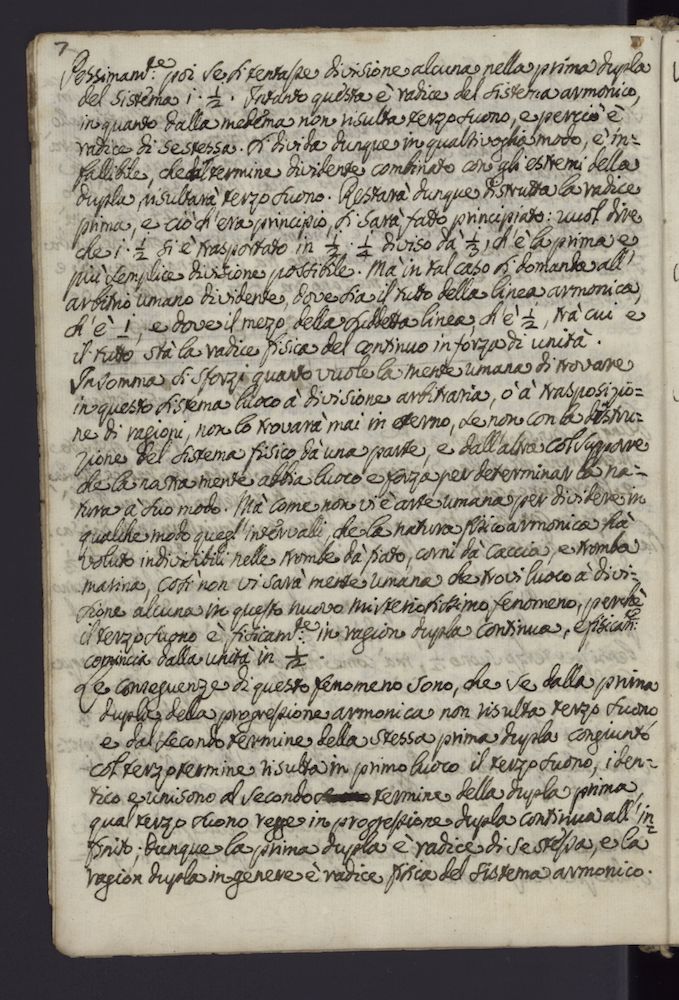 7
Pessimam.te poi se si tentasse divisione alcuna nella prima dupla
del sistema 1. 1/2. Intanto questa è radice del sistema armonico,
in quanto dalla medema non risulta terzo suono, e perciò è
radice di se stessa. Si divida dunque in qualsivoglia modo, è in=
fallibile, che dal termine dividente combinato con gli estremi della
dupla risultarà terzo suono. Restarà dunque distrutta la radice
prima, e ciò ch'era principio, si sarà fatto principiato: vuol dire
che 1. 1/2 si è trasportato in 1/2. 1/4 diviso da 1/3, ch'è la prima e
più semplice divisione possibile. Mà in tal caso si domanda all'
arbitrio umano dividente, dove sia il tutto della linea armonica,
ch'è 1, e dove il mezo della suddetta linea, ch'è 1/2, trà cui e
il tutto stà la radice fisica del continuo in forza di unità.
In somma si sforzi quanto vuole la mente umana di trovare
in questo sistema luoco à divisione arbitraria, ò à trasposizio=
ne di ragioni, non lo trovarà mai in eterno, se non con la distru=
zione del sistema fisico da una parte, e dall'altra col supporre
che la nostra mente abbia luoco e forza per determinar la na=
tura à suo modo. Mà come non vi è arte umana per dividere in
qualche modo quegl'intervalli, che la natura fisicoarmonica hà
voluto indivisibili nelle trombe da fiato, corni da caccia, e tromba
marina, così non vi sarà mente umana che trovi luoco à divi=
sione alcuna in questo nuovo misteriosissimo fenomeno, perchè
il terzo suono è fisicam.te in ragion dupla continua, e fisicam.te
comincia dalla unità in 1/2.
Le conseguenze di questo fenomeno sono, che se dalla prima
dupla della progressione armonica non risulta terzo suono
e dal secondo termine della stessa prima dupla congiunto
col terzo termine risulta in primo luoco il terzo suono, iden=
tico e unisono al secondo termine della dupla prima,
qual terzo suono regge in progressione dupla continua all'in=
finito; dunque la prima dupla è radice di se stessa, e la
ragion dupla in genere è radice fisica del sistema armonico.